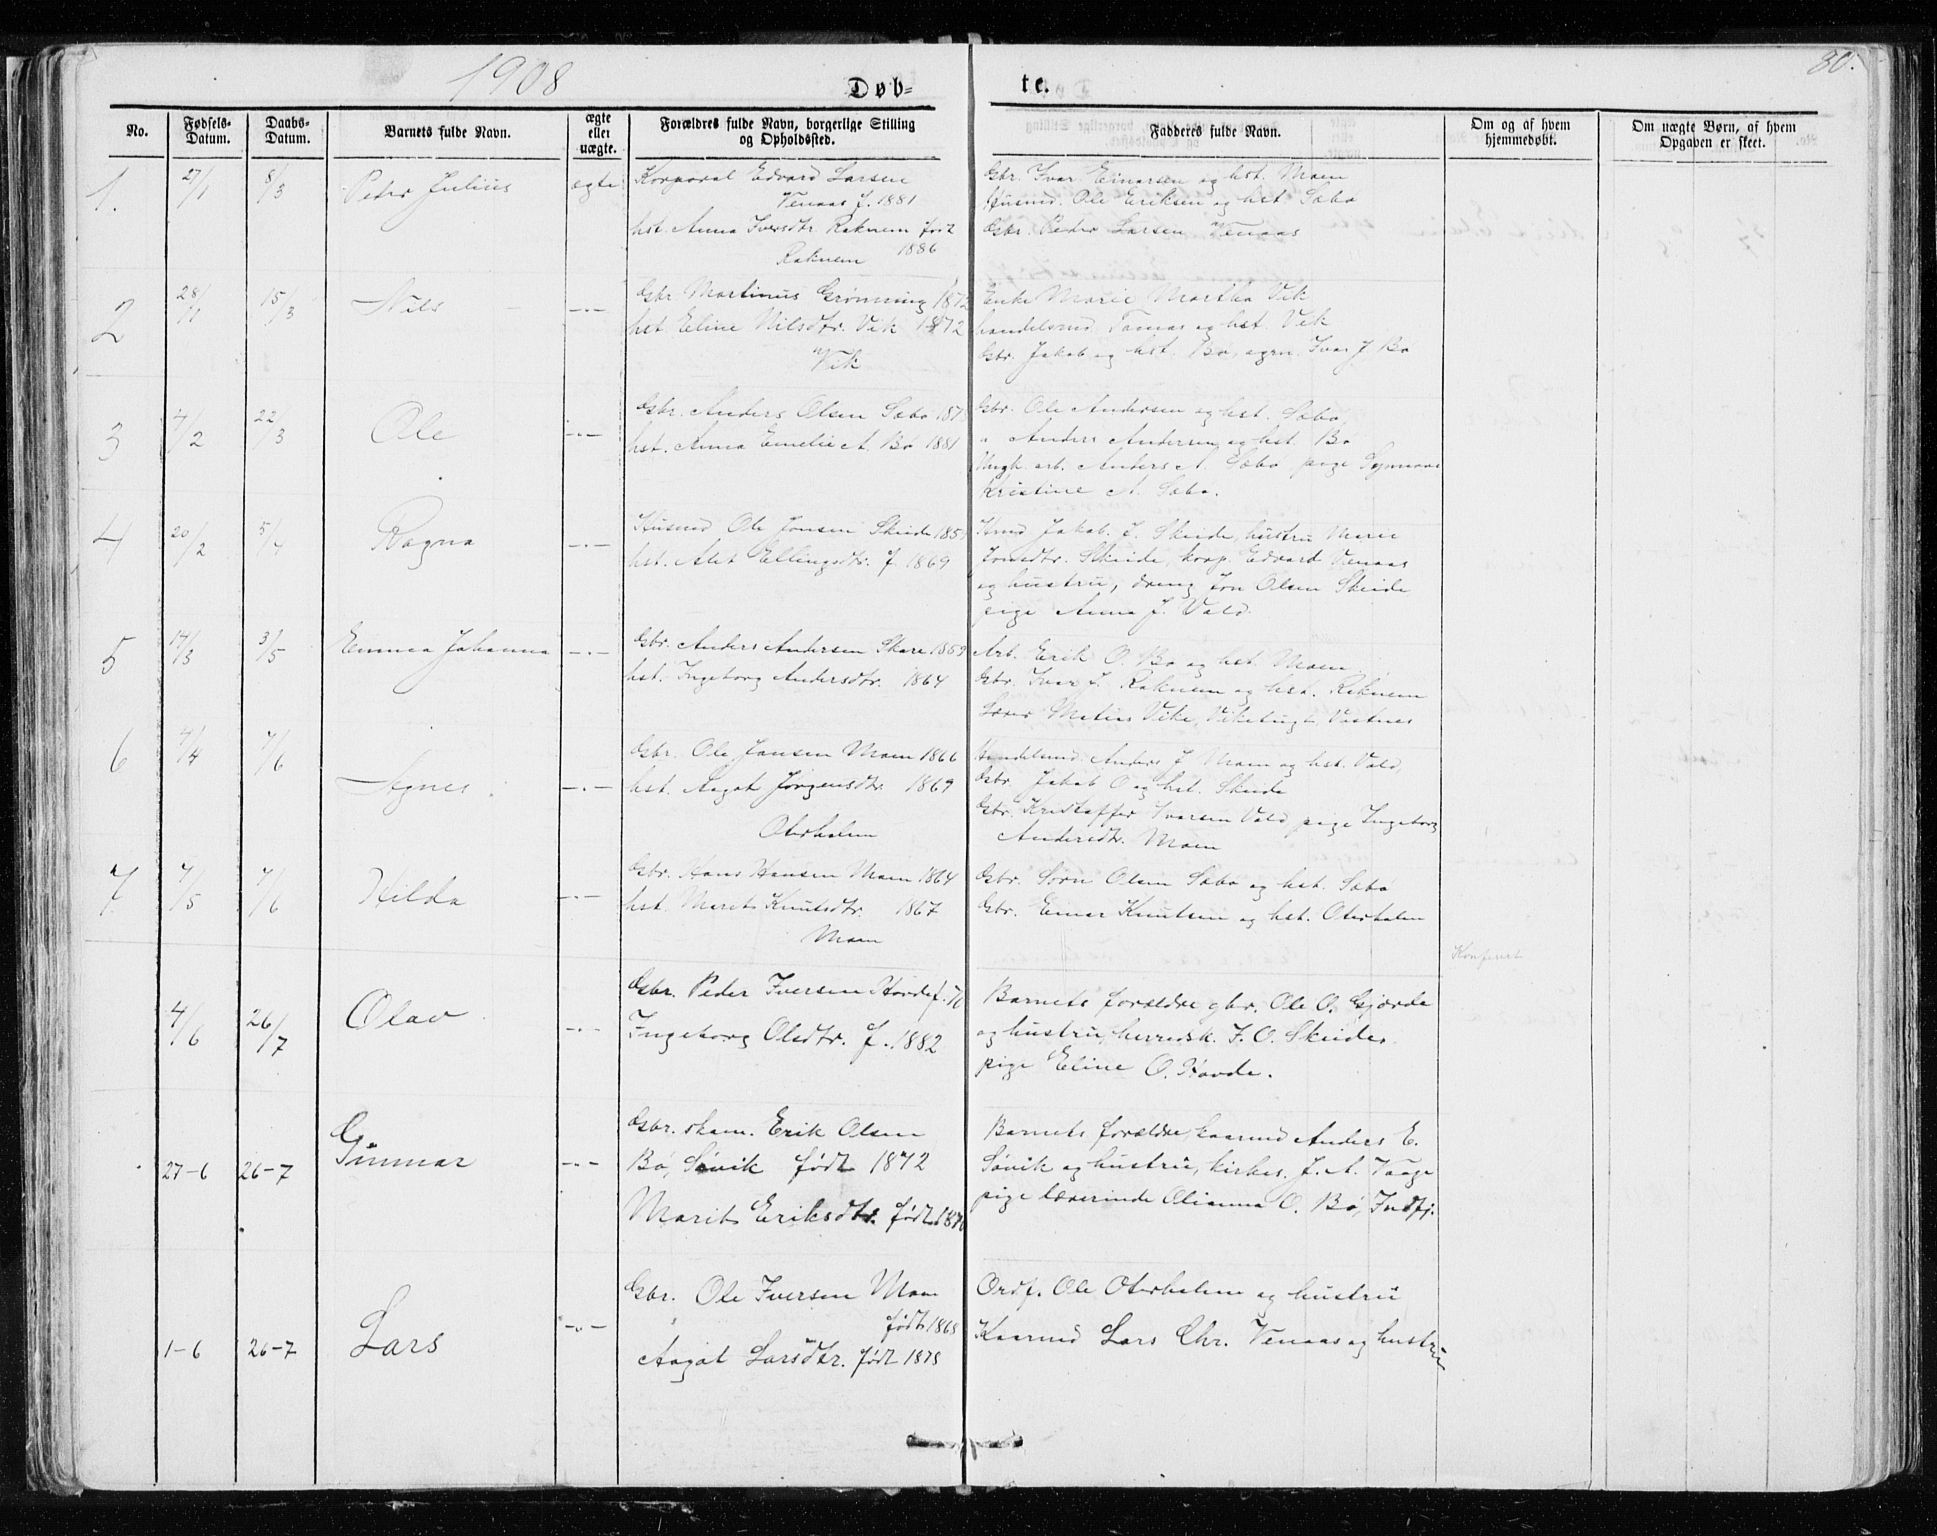 1908
80.
Døb-
te.
No.
Fødsels-Datum.
Daabs-Datum.
Barnets fulde Navn.
ægte eller uægte.
Forældres fulde Navn, borgerlige Stilling og Opholdssted.
Fadderes fulde Navn.
Om og af hvem hjemmedøbt.
Om uægte Børn, af hvem Opgaven er skeet.
1. 27/1 8/3 Peder Julius ægte
Korporal Edvard Larsen
Venaas f. 1881
hst. Anna Iversdtr. Raknem født
Raknem 1886
Gbr. Ivar Einarsen og hst. Moen
Husmd. Ole Eriksen og hst. Sæbø
Gbr. Peder Larsen Venaas
2 28/1 15/3 Nils -"-
Gbr. Martinus Grønning 1872
hst. Eline Nilsdtr. Vik 1872
Vik
Enke Marie Martha Vik
handelsmd. Tomas og hst. Vik
Gbr. Jakob og hst. Bø, ugm. Ivar J. Bø
3 4/2 22/3 Ole -"-
Gbr. Anders Olsen Sæbø 187
hst. Anna Emelie A. Bø 1881
Gbr. Ole Andersen og hst. Sæbø
" Anders Andersen og hst. Bø
Ungk. arb. Anders A. Sæbø pige
Kristine A. Sæbø.
4 20/2 5/4 Ragna -"-
Husmd Ole Jonsen Skeide 185
hst. Alet Ellingsdtr. f. 1869
Hmd Jakob J. Skeide, hustru Marie
Jonsdtr. Skeide, korp. Edvard Venaas
og hustru, dreng Jon Olsen Skeide
pige Anna J. Vold.
5 14/3 3/5 Emma Johanna -"-
Gbr. Anders Andersen Skare 1869
hst. Ingeborg Andersdtr. 1864
Arb. Erik O. Bø og hst. Moen.
Gbr. Ivar J. Raknem og hst. Raknem
Lærer Matias Vike, Viketugt, Vestnes
6 4/4 7/6 Agnes. -"-
Gbr. Ole Jonsen Moen 1866
hst. Aagot Jørgensdtr. 1869
Oterholm
Handelsmd. Anders J. Moen og hst. Vold.
Gbr. Jakob O og hst. Skeide
Gbr. Kristoffer Ivarsen Vold, pige Ingeborg
Andersdtr. Moen
7. 7/5 7/6 Hilda -"-
Gbr. Hans Hansen Moen 1864
hst. Marit Knutsdtr. 1867
Moen
Gbr. Sørn Olsen Sæbø og hst. Sæbø
Gbr. Einar Knutsen og hst. Oterholm
4/6 26/7 Olav -"-
Gbr. Peder Iversen Hovde f. 70
Ingeborg Olsdtr. f. 1882
Barnets forældre gbr. Ole O. Gjærde
og hustru, herredsk. J. O. Skeide,
pige Eline O. Hovde.
27-6 26-7 Gunnar -"-
Gbr. skom. Erik Olsen
Bø, Søvik født 1872
Marit Eriksdtr. født 187
Barnets forældre, kaarmd Anders E.
Søvik og hustru, kirkes. J. A. Vaage
pige lærerinde Olianna O. Bø, Indfj.
1-6 26-7 Lars -"-
Gbr. Ole Iversen Moen
født 1868
Aagot Larsdtr. født 1878
Ordf. Ole Oterholm og hustru
Kaarmd Lars Chr. Venaas og hustru